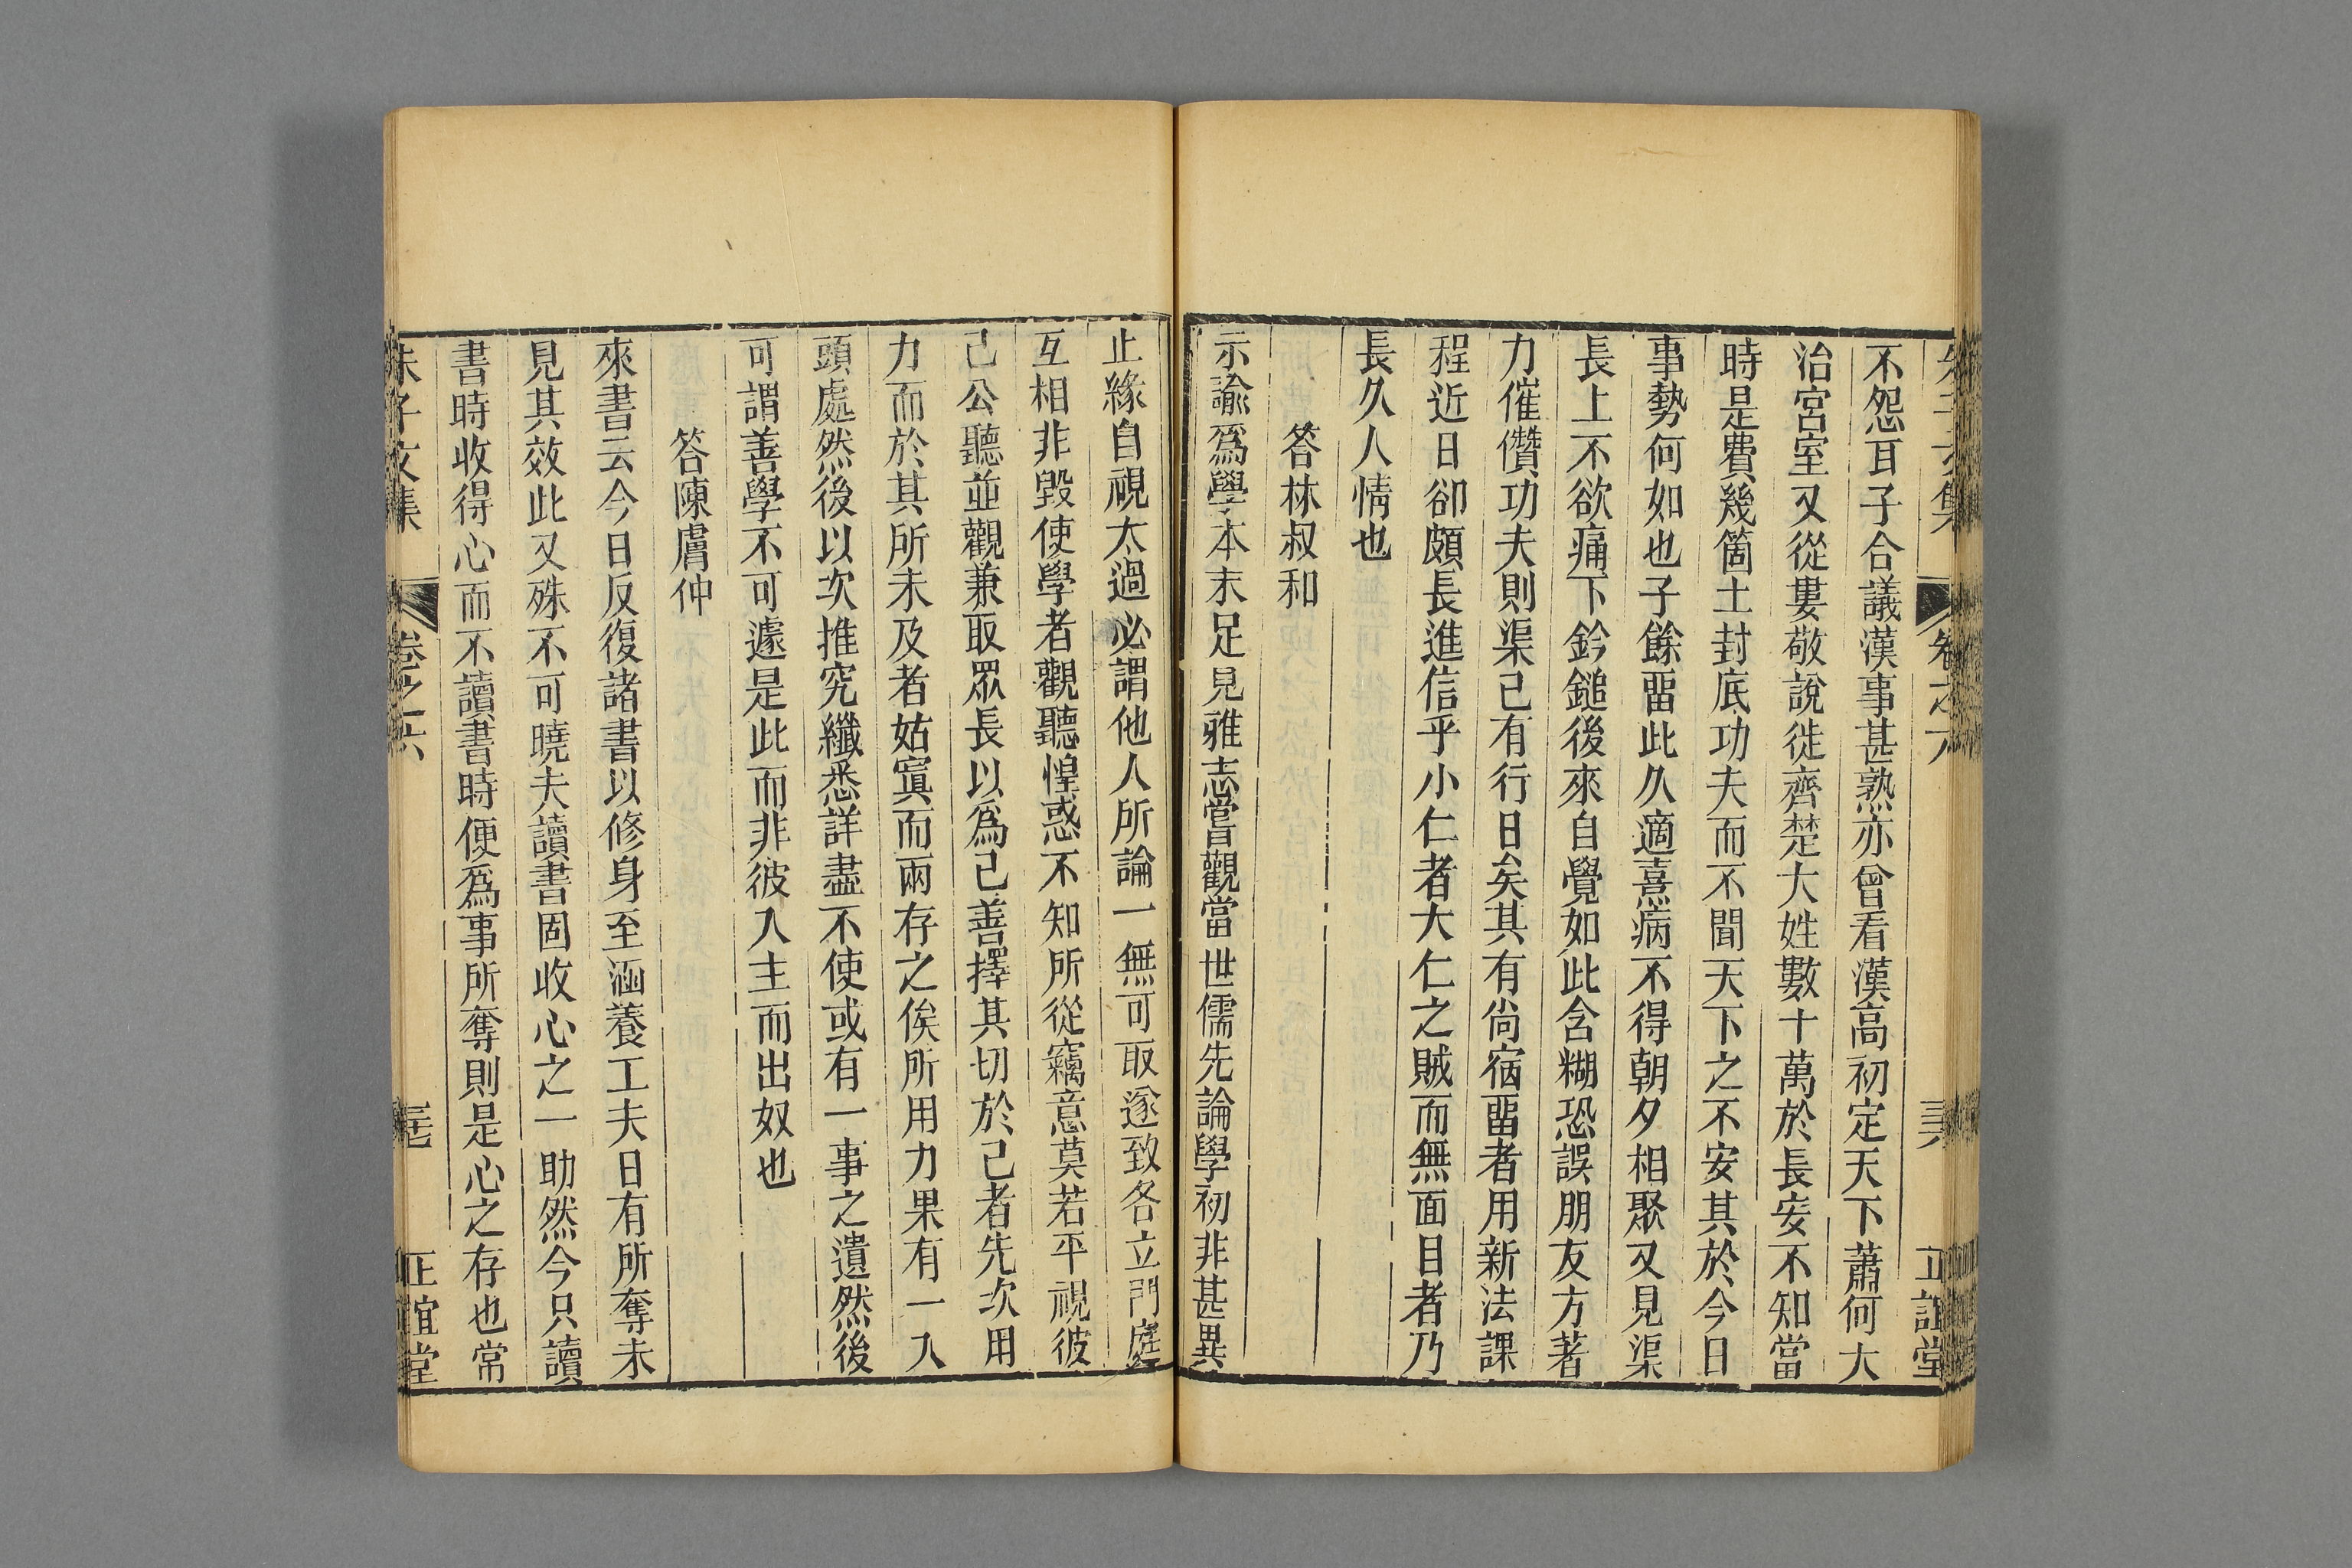 不怨耳子合議漢事甚熟亦曾看漢高初定天下蕭何大
治宮室又從婁敬說徙齊楚大姓數十萬於長安不知當
時是費幾箇土封底功夫而不聞天下之不安其於今日
事勢何如也子餘畱此久適熹病不得朝夕相聚又見渠
長上不欲痛下鈐鎚後來自覺如此含糊恐誤朋友方著
力催儹功夫則渠已有行日矣其有尙宿畱者用新法課
程近日卻頗長進信乎小仁者大仁之賊而無面目者乃
長久人情也
答林叔和
示諭爲學本末足見雅志嘗觀當世儒先論學初非甚異
止緣自視太過必謂他人所論一無可取遂致各立門庭
互相非毀使學者觀聽惶惑不知所從竊意莫若平視彼
己公聽並觀兼取眾長以爲己善擇其切於己者先次用
力而於其所未及者姑寘而兩存之俟所用力果有一入
頭處然後以次推究纖悉詳盡不使或有一事之遺然後
可謂善學不可遽是此而非彼入主而出奴也
答陳膚仲
來書云今日反復諸書以修身至涵養工夫日有所奪未
見其效此又殊不可曉夫讀書固收心之一助然今只讀
書時收得心而不讀書時便爲事所奪則是心之存也常
朱子文集 卷之六 正誼堂